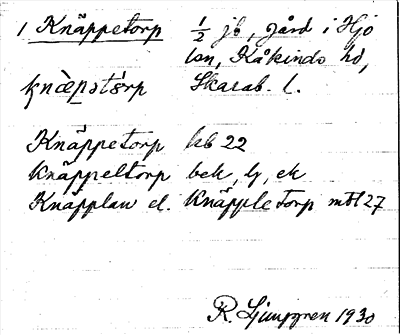 1 Knäppetorp ½ jb, gård i Hjo
lsn, Kåkinds hd,
knæ̀pətɔrp Skarab. l.
Knäppetorp kb 22
Knäppeltorp bek, lj, ek
Knäpplan el. Knäppletorp mtl 27
R. Ljunggren 1930